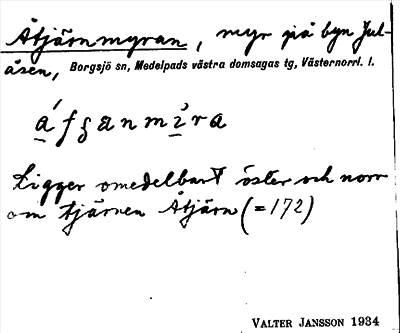 Åtjärnmyran, myr på byn Jul-
åsen, Borgsjö sn, Medelpads västra domsagas tg, Västernorrl. l.
Ligger omedelbart öster och norr
om tjärnen Åtjärn (=172)
VALTER JANSSON 1934